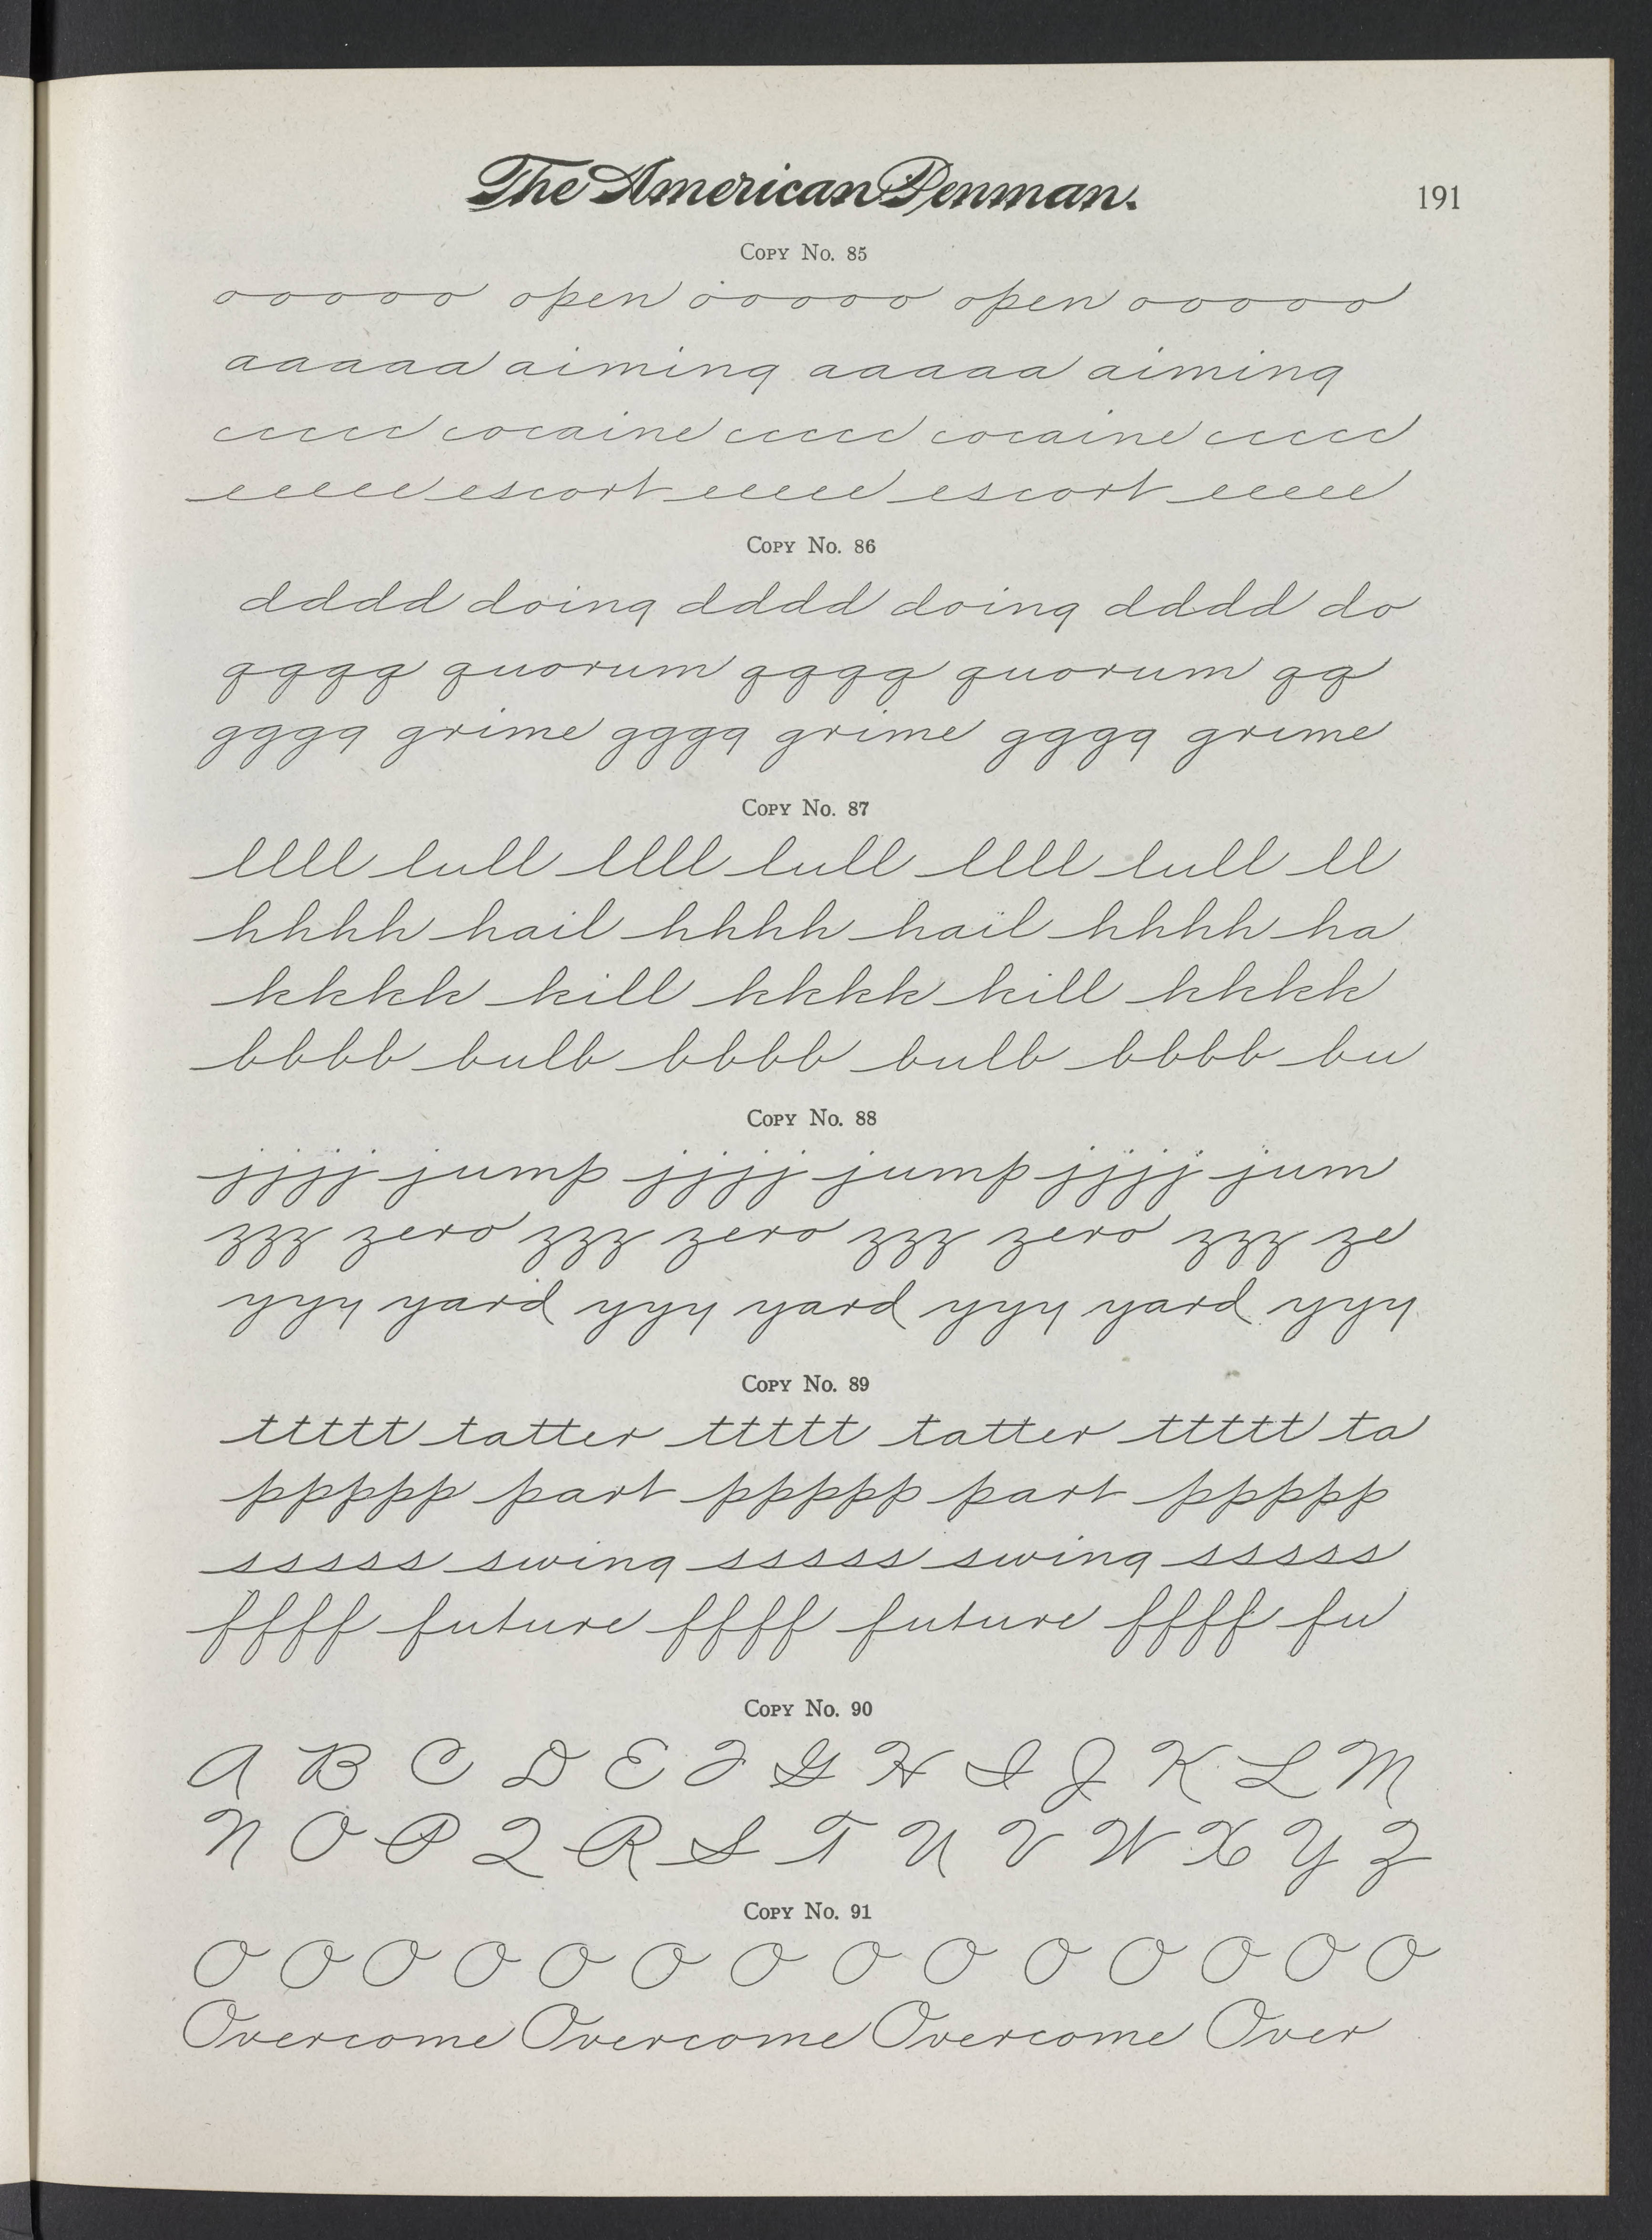 The American Penman.
191
Copy No. 85
ooooo open ooooo open ooooo
aaaaa aiming aaaaa aiming
ccccc cocaine ccccc cocaine ccccc
eeeee escort eeeee escort eeeee
Copy No. 86
dddd doing dddd doing dddd do
qqqq quorum qqqq quorum qq
gggg grime gggg grime gggg grime
Copy No. 87
llll lull llll lull llll lull ll
hhhh hail hhhh hail hhhh ha
kkkk kill kkkk kill kkkk
bbbb bulb bbbb bulb bbbb bu
Copy No. 88
jjjj jump jjjj jump jjjj jum
zzz zero zzz zero zzz zero zzz ze
yyy yard yyy yard yyy yard yyy
Copy No. 89
ttttt tatter ttttt tatter ttttt ta
ppppp part ppppp part ppppp
sssss swing sssss swing sssss
ffff future ffff future ffff fu
Copy No. 90
A B C D E F G H I J K L M
N O P Q R S T U V W X Y Z
Copy No. 91
O O O O O O O O O O O O O O
Overcome Overcome Overcome Over